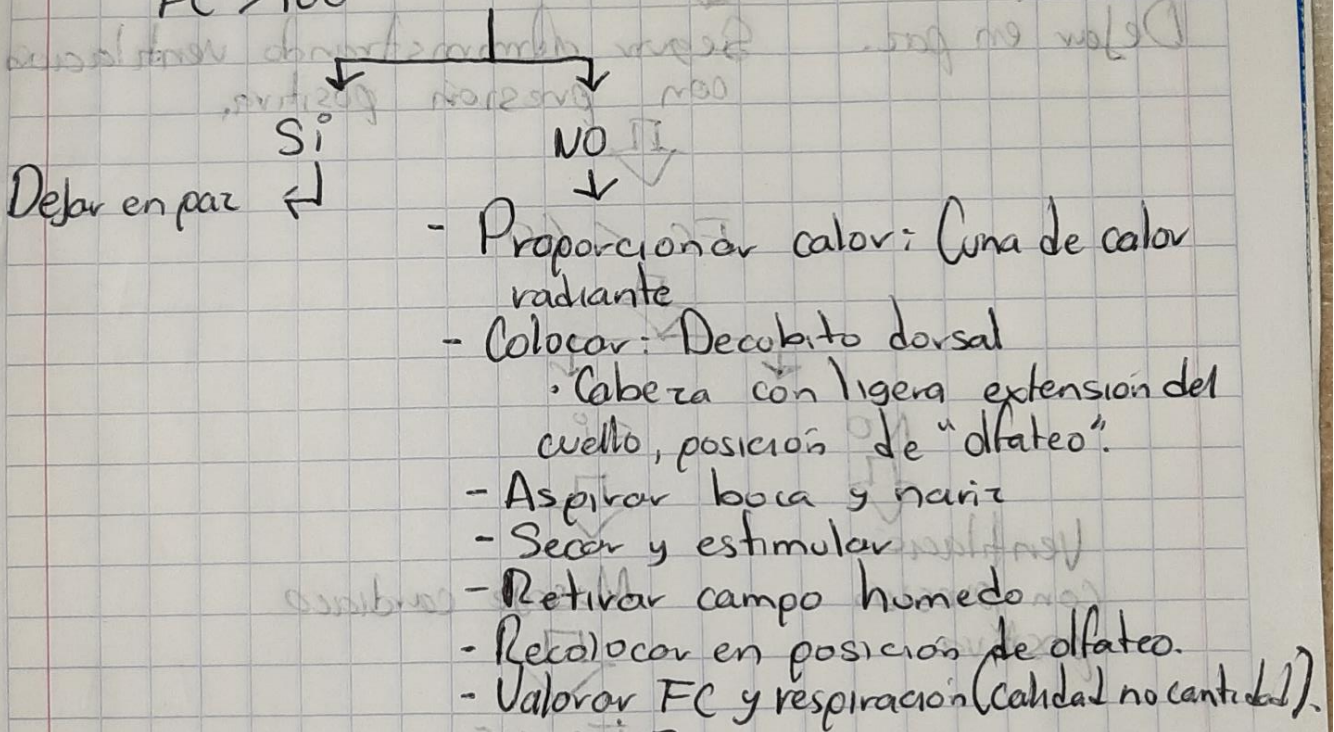 FC >100
Si NO
Dejar en paz
- Proporcionar calor: Cuna de calor
radiante
- Colocar: Decubito dorsal
· Cabeza con ligera extension del
cuello, posición de "olfateo".
- Aspirar boca y nariz
- Secar y estimular
- Retirar campo humedo
- Recolocar en posición de olfateo.
- Valorar FC y respiración (calidad no cantidad).